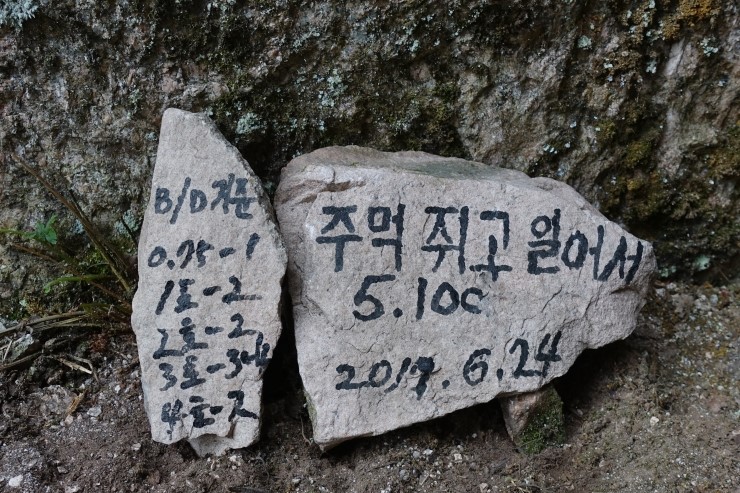 B/D기준
0.75-1
1호-2
2호-2
3호-3개
4호-2
주먹 쥐고 일어서
5.10c
2017.6.24